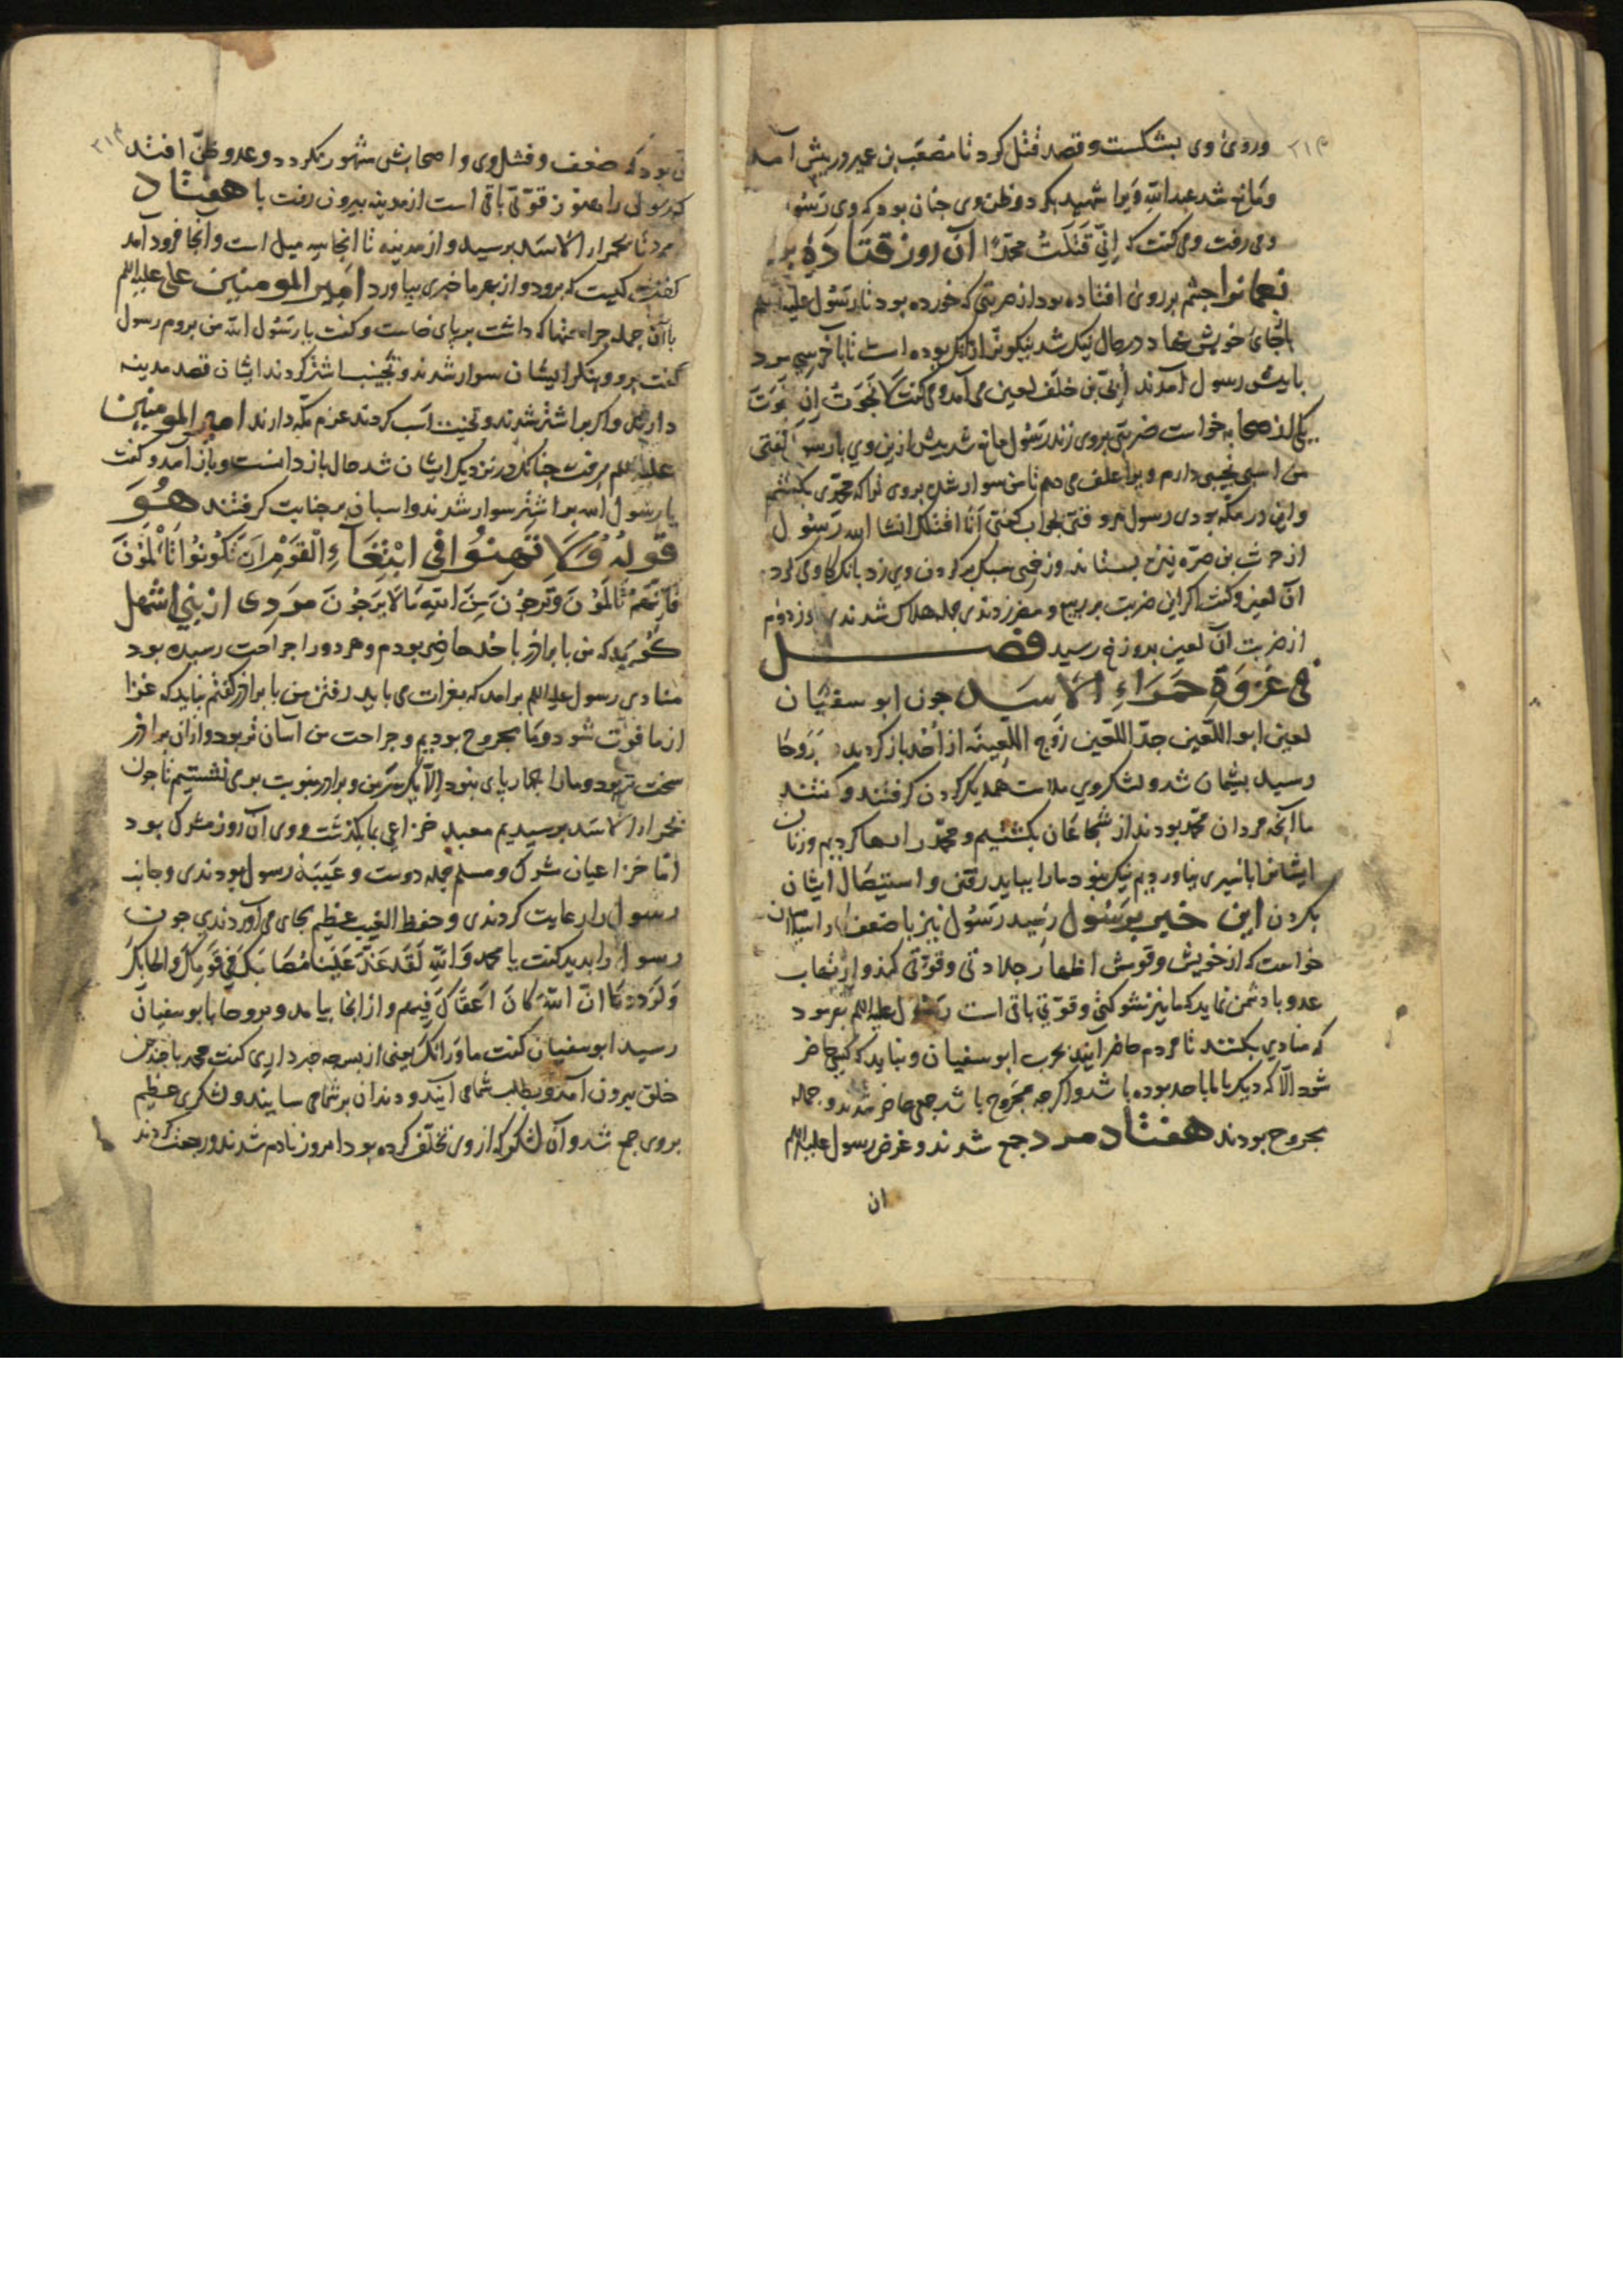 وروی وی بشکست وقصد قتل کرد تا مصعب بن عمیر در پیش آمد
ومانع شد عبدالله ویرا شهید بکرد وظن وی چنان بود که وی رسو
ومی رفت ومی گفت که اِنّی قَتَلتُ محمّدًا آن روز قتادَهٔ بر
نعمانرا چشم بر روی افتاده بود از ضربتی که خورده بود تا رسول علیه السلم
باجای خویش نهاد در حال نیک شد نیکوتر از آنک بوده است تا بآخر
با پیش رسول آمدند اُبیّ بن خلف لعین می آمد ومی گفت لا نَجَوتُ اِن نَجَوتَ
یکی از صحابه خواست ضربتی بر وی زند رسول مانع شد پیش ازین وی با رسول گفتی
من اسبی نجیبی دارم ویرا علف می دهم تا من سوار شده بر وی ترا که محمّدی بکشم
واین در مکّه بودی رسول هر وقتی بجواب گفتی اَنا اقتلک انشا الله رسول
از حرث بن صمّه نیزه بستاند وزخمی سبک بر گردن وی زد بانک گاوی کرد
آن لعین وگفت اگر این ضربت بر ربیع ومضر زدندی جمله هلاک شدندی روز دوم
از ضربت آن لعین بدوزخ رسید فصل
فی غَزوَةِ حَمرَاءِ الاَسَدِ چون ابو سفیان
لعین ابو اللّعین جدّ اللّعین زوج اللّعینه از اُحُد باز گردید بروحا
رسید پشیمان شد ولشکر وی ملامت همدیگر کردن گرفتند وگفتند
ما آنچه مردان محمّد بودند از شجاعان بکشتیم ومحمّد را رها کردیم وزنان
ایشانرا باسیری نیاوردیم نیک نبود مارا بباید رفتن واستیصال ایشان
بکردن این خبر برسُول رسید رسول نیز با ضعف
خواست که از خویش وقومش اظهار جلادتی وقوّتی کند وارتعاب
عدو با دشمن نماید که ما نیز شوکتی وقوّتی باقی است رسول علیه السلم بفرمود
که منادی بکنند تا مردم حاضر آیند بحرب ابو سفیان ونباید که کسی حاضر
شود الّا که دیک با ما باحد بوده باشد واگرچه مجروح باشد جمعی حاضر شدند وجمله
مجروح بودند هفتاد مرد جمع شدند وغرض رسول علیه السلم
ان
آن بود که ضعف وفشل وی واصحابش مشهور نگردد وعدو ظنّ افتد
که رسول را هنوز قوّتی باقی است از مدینه بیرون رفت با هفتاد
مرد تا بحمراء الاسد برسید واز مدینه تا آنجا سه میل است وآنجا فرود آمد
گفت کیست که برود واز بهر ما خبری بیاورد امیر المومنین علی علیه السلم
با آن جمله جراحتها که داشت بر پای خاست وگفت یا رسول الله من بروم رسول
گفت برو وبنگر ایشان سوار شدند وتجنیب اشتر کردند ایشان قصد مدینه
دارند واگر بر اشتر شدند وتجنیب اسب کردند عزم مکّه دارند امیر المومنین
علیه السلم برفت چنانک در نزدیک ایشان شد حال باز دانست وباز آمد وگفت
یا رسول الله بر اشتر سوار شدند واسبان بر جنایب گرفتند هُوَ
قولهُ وَلَا تَهِنُوا فِی ابتِغَاءِ القَومِ اِن تَکُونُوا تَألَمُونَ
فَاِنَّهُم یَألَمُونَ وَتَرجُونَ مِنَ اللهِ مَا لَا یَرجُونَ مردی از بنی اشهل
گوید که من با برادر باحد حاضر بودم وهر دو را جراحت رسیده بود
منادی رسول علیه السلم برآمد که بغزات می باید رفتن من با برادر گفتم نباید که غزا
از ما فوت شود وما مجروح بودیم وجراحت من آسان تر بود وازان برادر
سخت تر بود ومارا چهارپای نبود الّا یک سر من وبرادر بنوبت بر می نشستیم تا چون
بحمراء الاسد برسیدیم معبد خزاعی بما بگذشت ووی آن روز مشرک بود
امّا خزاعیان مشرک ومسلم جمله دوست وعَیبَهٔ رسول بودندی وجانب
رسول را رعایت کردندی وحفظ الغیب عظیم بجای می آوردندی چون
رسول را بدید گفت یا محمد وَاللهِ لَقَد عَزَّ عَلَینا مُصَابُکَ فِی قَومِکَ واصحابک
وَلَوَدِدنَا انّ اللهَ کَانَ اَعفَاکَ فِیهِم واز آنجا بیامد وبروحا بابو سفیان
رسید ابو سفیان گفت ما وَرَائَک یعنی از پس چه خبر داری گفت محمد با چندین
خلق بیرون آمد وبطلب شما می آیند ودندان بر شما می سایند ولشکری عظیم
بر وی جمع شد وآن لشکر که از وی تخلّف کرده بود امروز نادم شدند ورجعت کردند